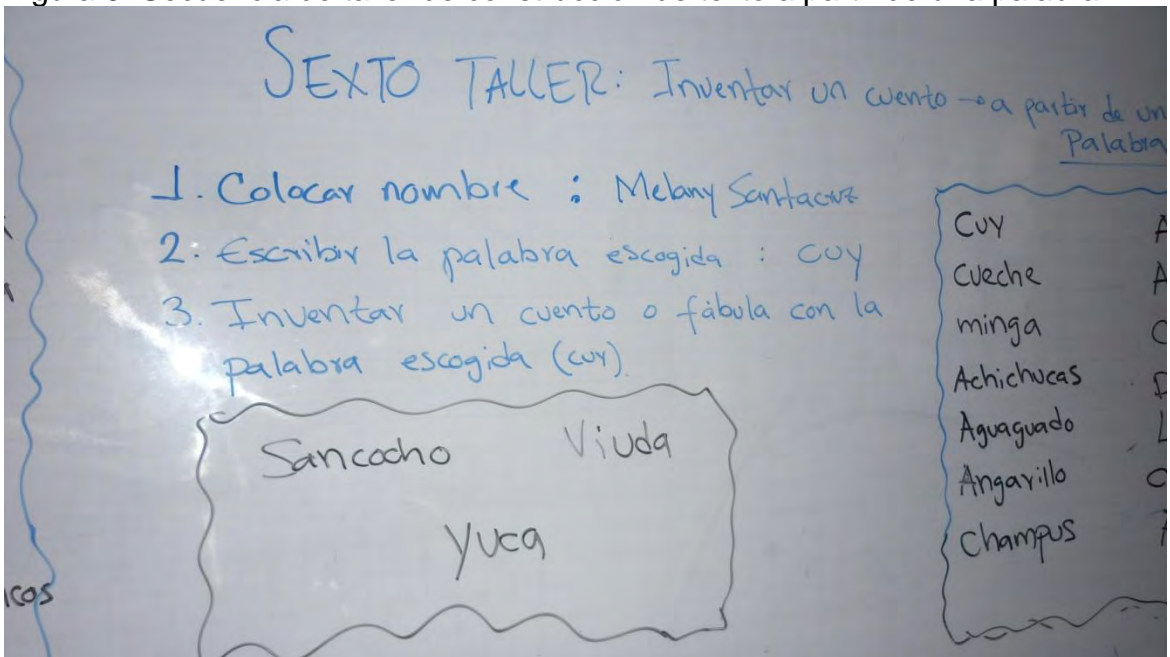 SEXTO TALLER: Inventar un cuento → a partir de un
Palabra
1. Colocar nombre : Melany Santacruz
2. Escribir la palabra escogida : cuy
3. Inventar un cuento o fábula con la
palabra escogida (cuy).
Sancocho Viuda
Yuca
Cuy
Cueche
minga
Achichucas
Aguaguado
Angarillo
Champus
icos